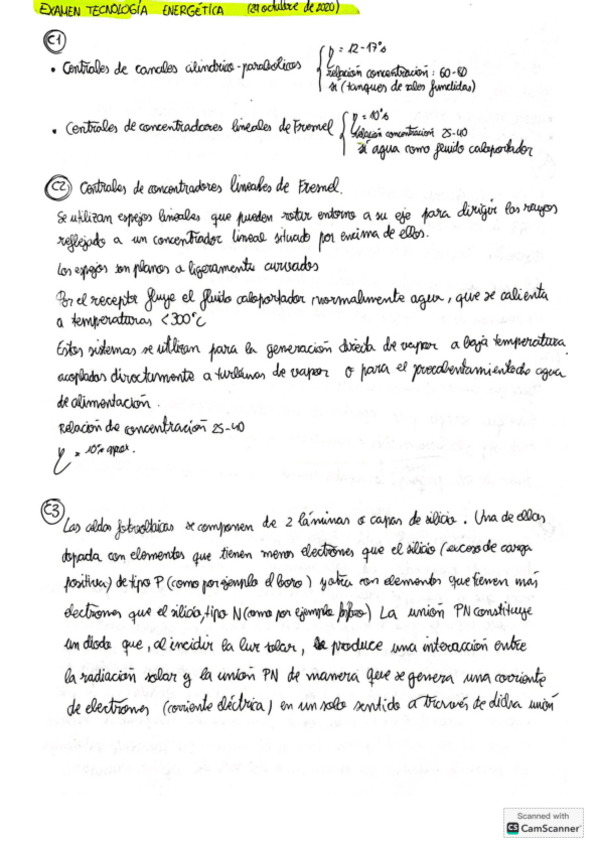 EXAMEN TECNOLOGÍA ENERGÉTICA (29 octubre de 2020)
C1
• Centrales de canales cilindrico-parabolicos
η = 12-17%
relación concentración: 60-80
si (tanques de sales fundidas)
• Centrales de concentradores lineales de Fresnel
η = 10%
relación concentracion 25-40
si agua como fluido caloportador
C2 Centrales de concentradores lineales de Fresnel.
Se utilizan espejos lineales que pueden rotar entorno a su eje para dirigir los rayos
reflejado a un concentrador lineal situado por encima de ellos.
Los espejos son planos o ligeramente curvados
Por el receptor fluye el fluido caloportador normalmente agua, que se calienta
a temperaturas <300°C
Estos sistemas se utilizan para la generación directa de vapor a baja temperatura
acoplados directamente a turbinas de vapor o para el precalentamiento de agua
de alimentación.
Relación de concentración 25-40
η = 10% aprox.
C3
Las celdas fotovoltaicas se componen de 2 láminas o capas de silicio. Una de ellas
dopada con elementos que tienen menos electrones que el silicio (exceso de carga
positiva) de tipo P (como por ejemplo el boro) y otra con elementos que tienen más
electrones que el silicio, tipo N (como por ejemplo fósforo) La unión PN constituye
un diodo que, al incidir la luz solar, se produce una interacción entre
la radiación solar y la unión PN de manera que se genera una corriente
de electrones (corriente eléctrica) en un solo sentido a través de dicha unión
Scanned with
CS CamScanner